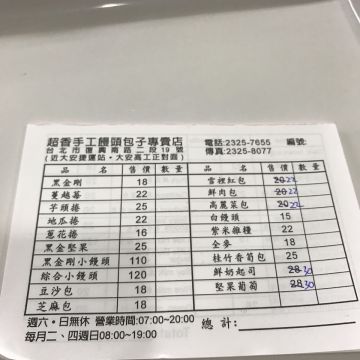 超香手工饅頭包子專賣店
台北市復興南路二段19號
(近大安捷運站・大安高工正對面)
電話:2325-7655 編號:
傳真:2325-8077
品名 售價 數量 品名 售價 數量
黑金剛 18 雪裡紅包 20 22
蔓越莓 22 鮮肉包 20 22
芋頭捲 25 高麗菜包 20 22
地瓜捲 22 白饅頭 15
蔥花捲 16 紫米雜糧 22
黑金堅果 25 全麥 18
黑金剛小饅頭 110 桂竹香菊包 25
綜合小饅頭 120 鮮奶起司 28 30
豆沙包 18 堅果葡萄 28 30
芝麻包 18
週六・日無休 營業時間:07:00~20:00
每月二、四週日08:00~19:00
總計: